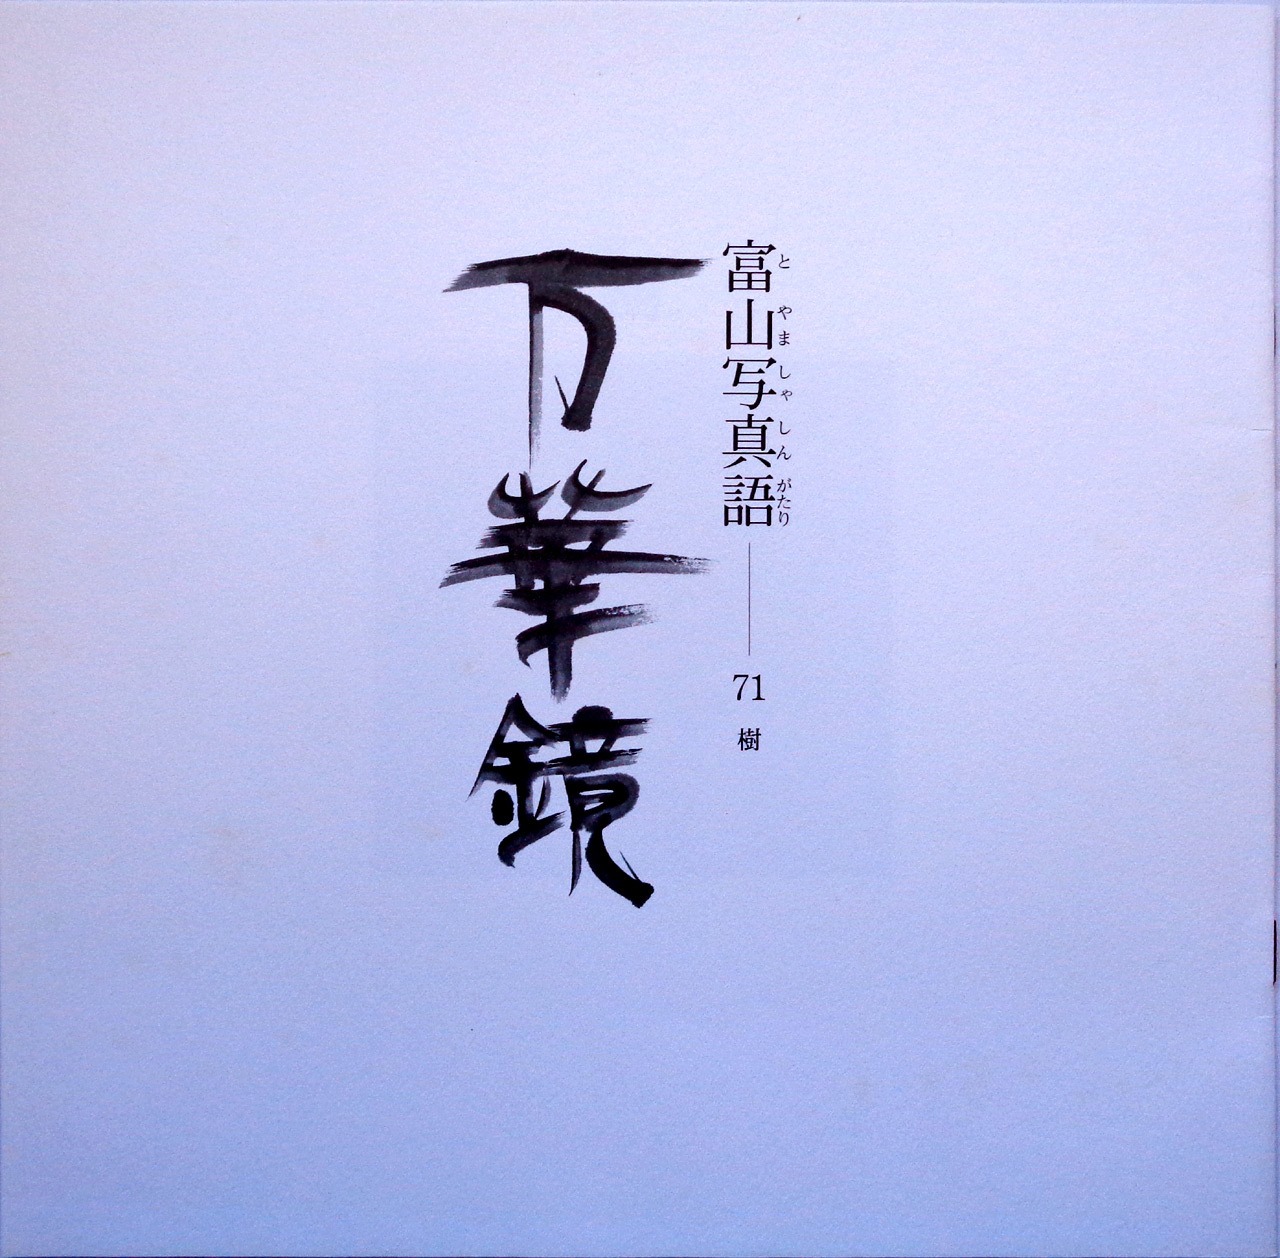 富山写真語 71 樹
とやましゃしんがたり
万華鏡